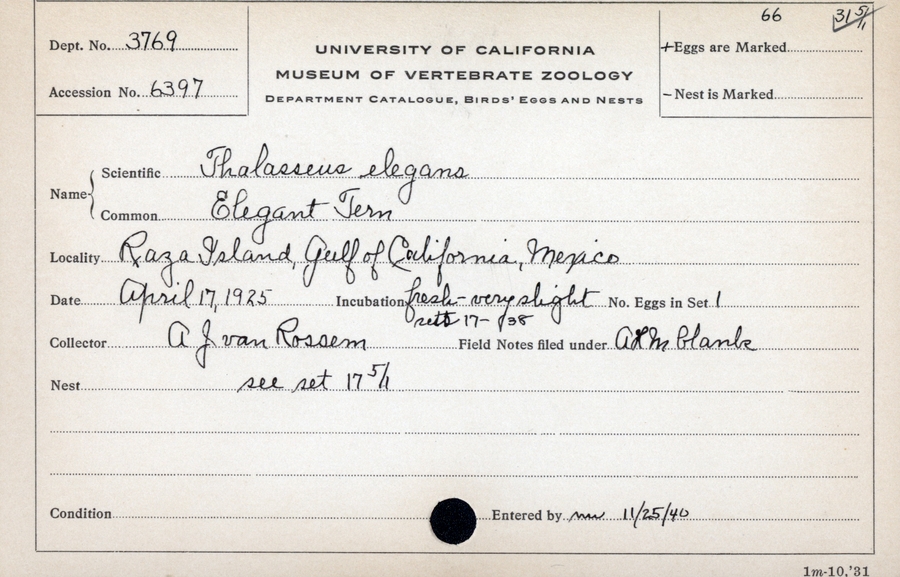 66 31 5/1
Dept. No. 3769
Accession No. 6397
UNIVERSITY OF CALIFORNIA
MUSEUM OF VERTEBRATE ZOOLOGY
DEPARTMENT CATALOGUE, BIRDS' EGGS AND NESTS
+Eggs are Marked
-Nest is Marked
Name
Scientific Thalasseus elegans
Common Elegant Tern
Locality Raza Island, Gulf of California, Mexico
Date April 17, 1925 Incubation fresh-very slight No. Eggs in Set 1
sets 17-38
Collector A J van Rossem Field Notes filed under
Nest see set 17 5/1
Condition Entered by 11/25/40
1m-10,'31